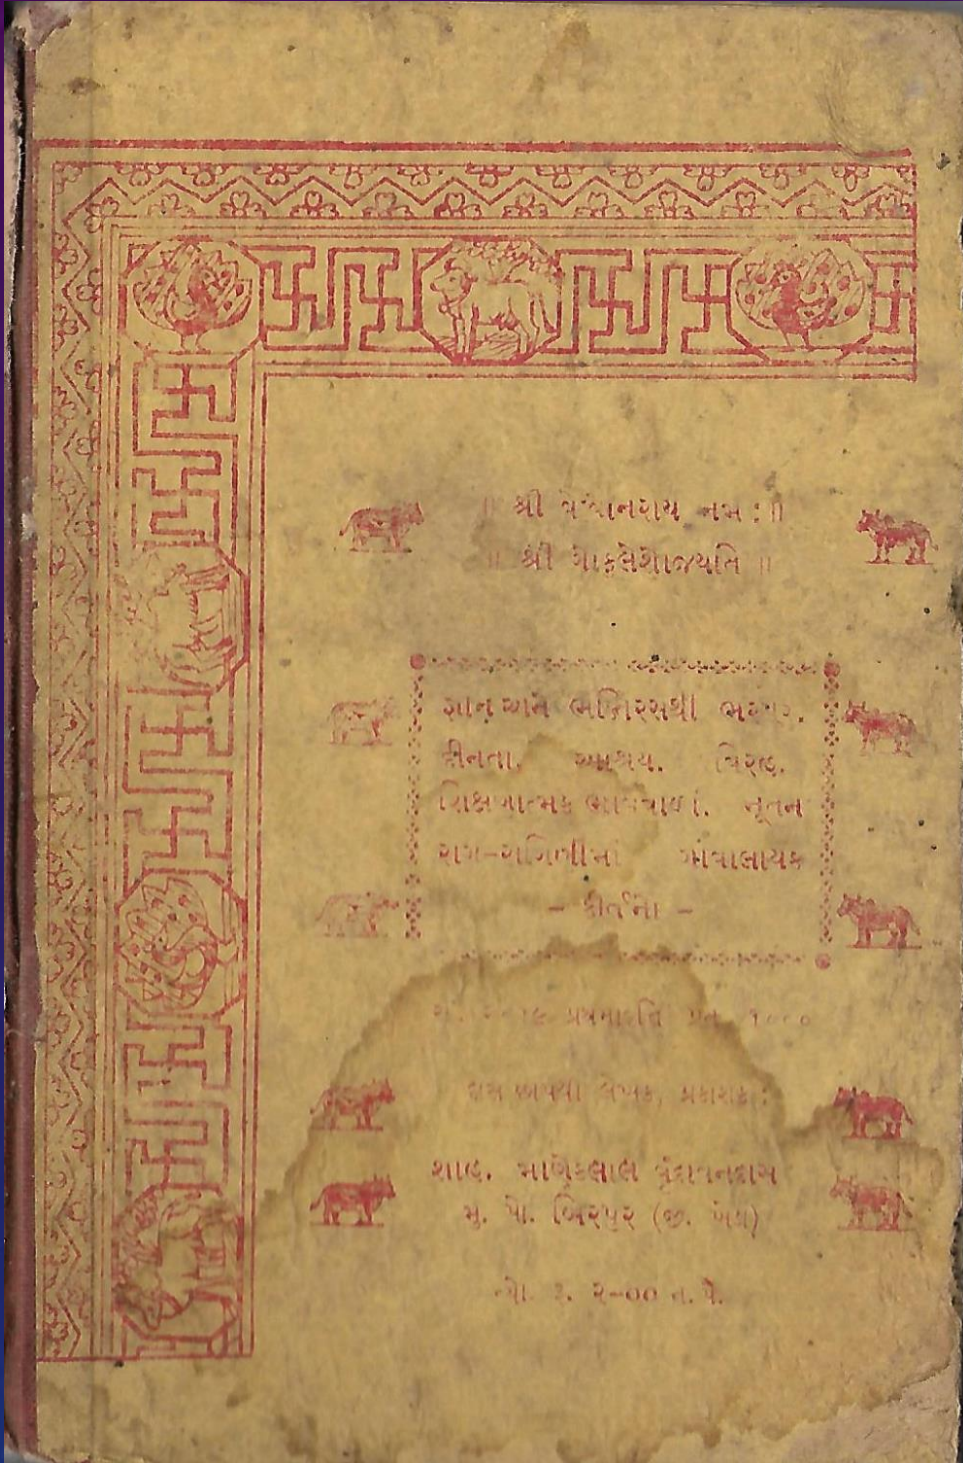 ॥ શ્રી વૈશ્વાનરાય નમઃ ॥
॥ શ્રી ગોકુલેશોજયતિ ॥
જ્ઞાન અને ભક્તિરસથી ભરપુર.
દીનતા. આશ્રય. વિરહ.
શિક્ષણાત્મક ભાવવાળાં. નૂતન
રાગ-રાગિણીમાં ગાવાલાયક
- કીર્તનો -
પ્રથમાવૃત્તિ પ્રત ૧૦૦૦
લેખક, પ્રકાશક :
શાહ. માણેકલાલ વૃંદાવનદાસ
મુ. પો. બિરપુર (જી. ખેડા)
૨-૦૦ ન. પૈ.